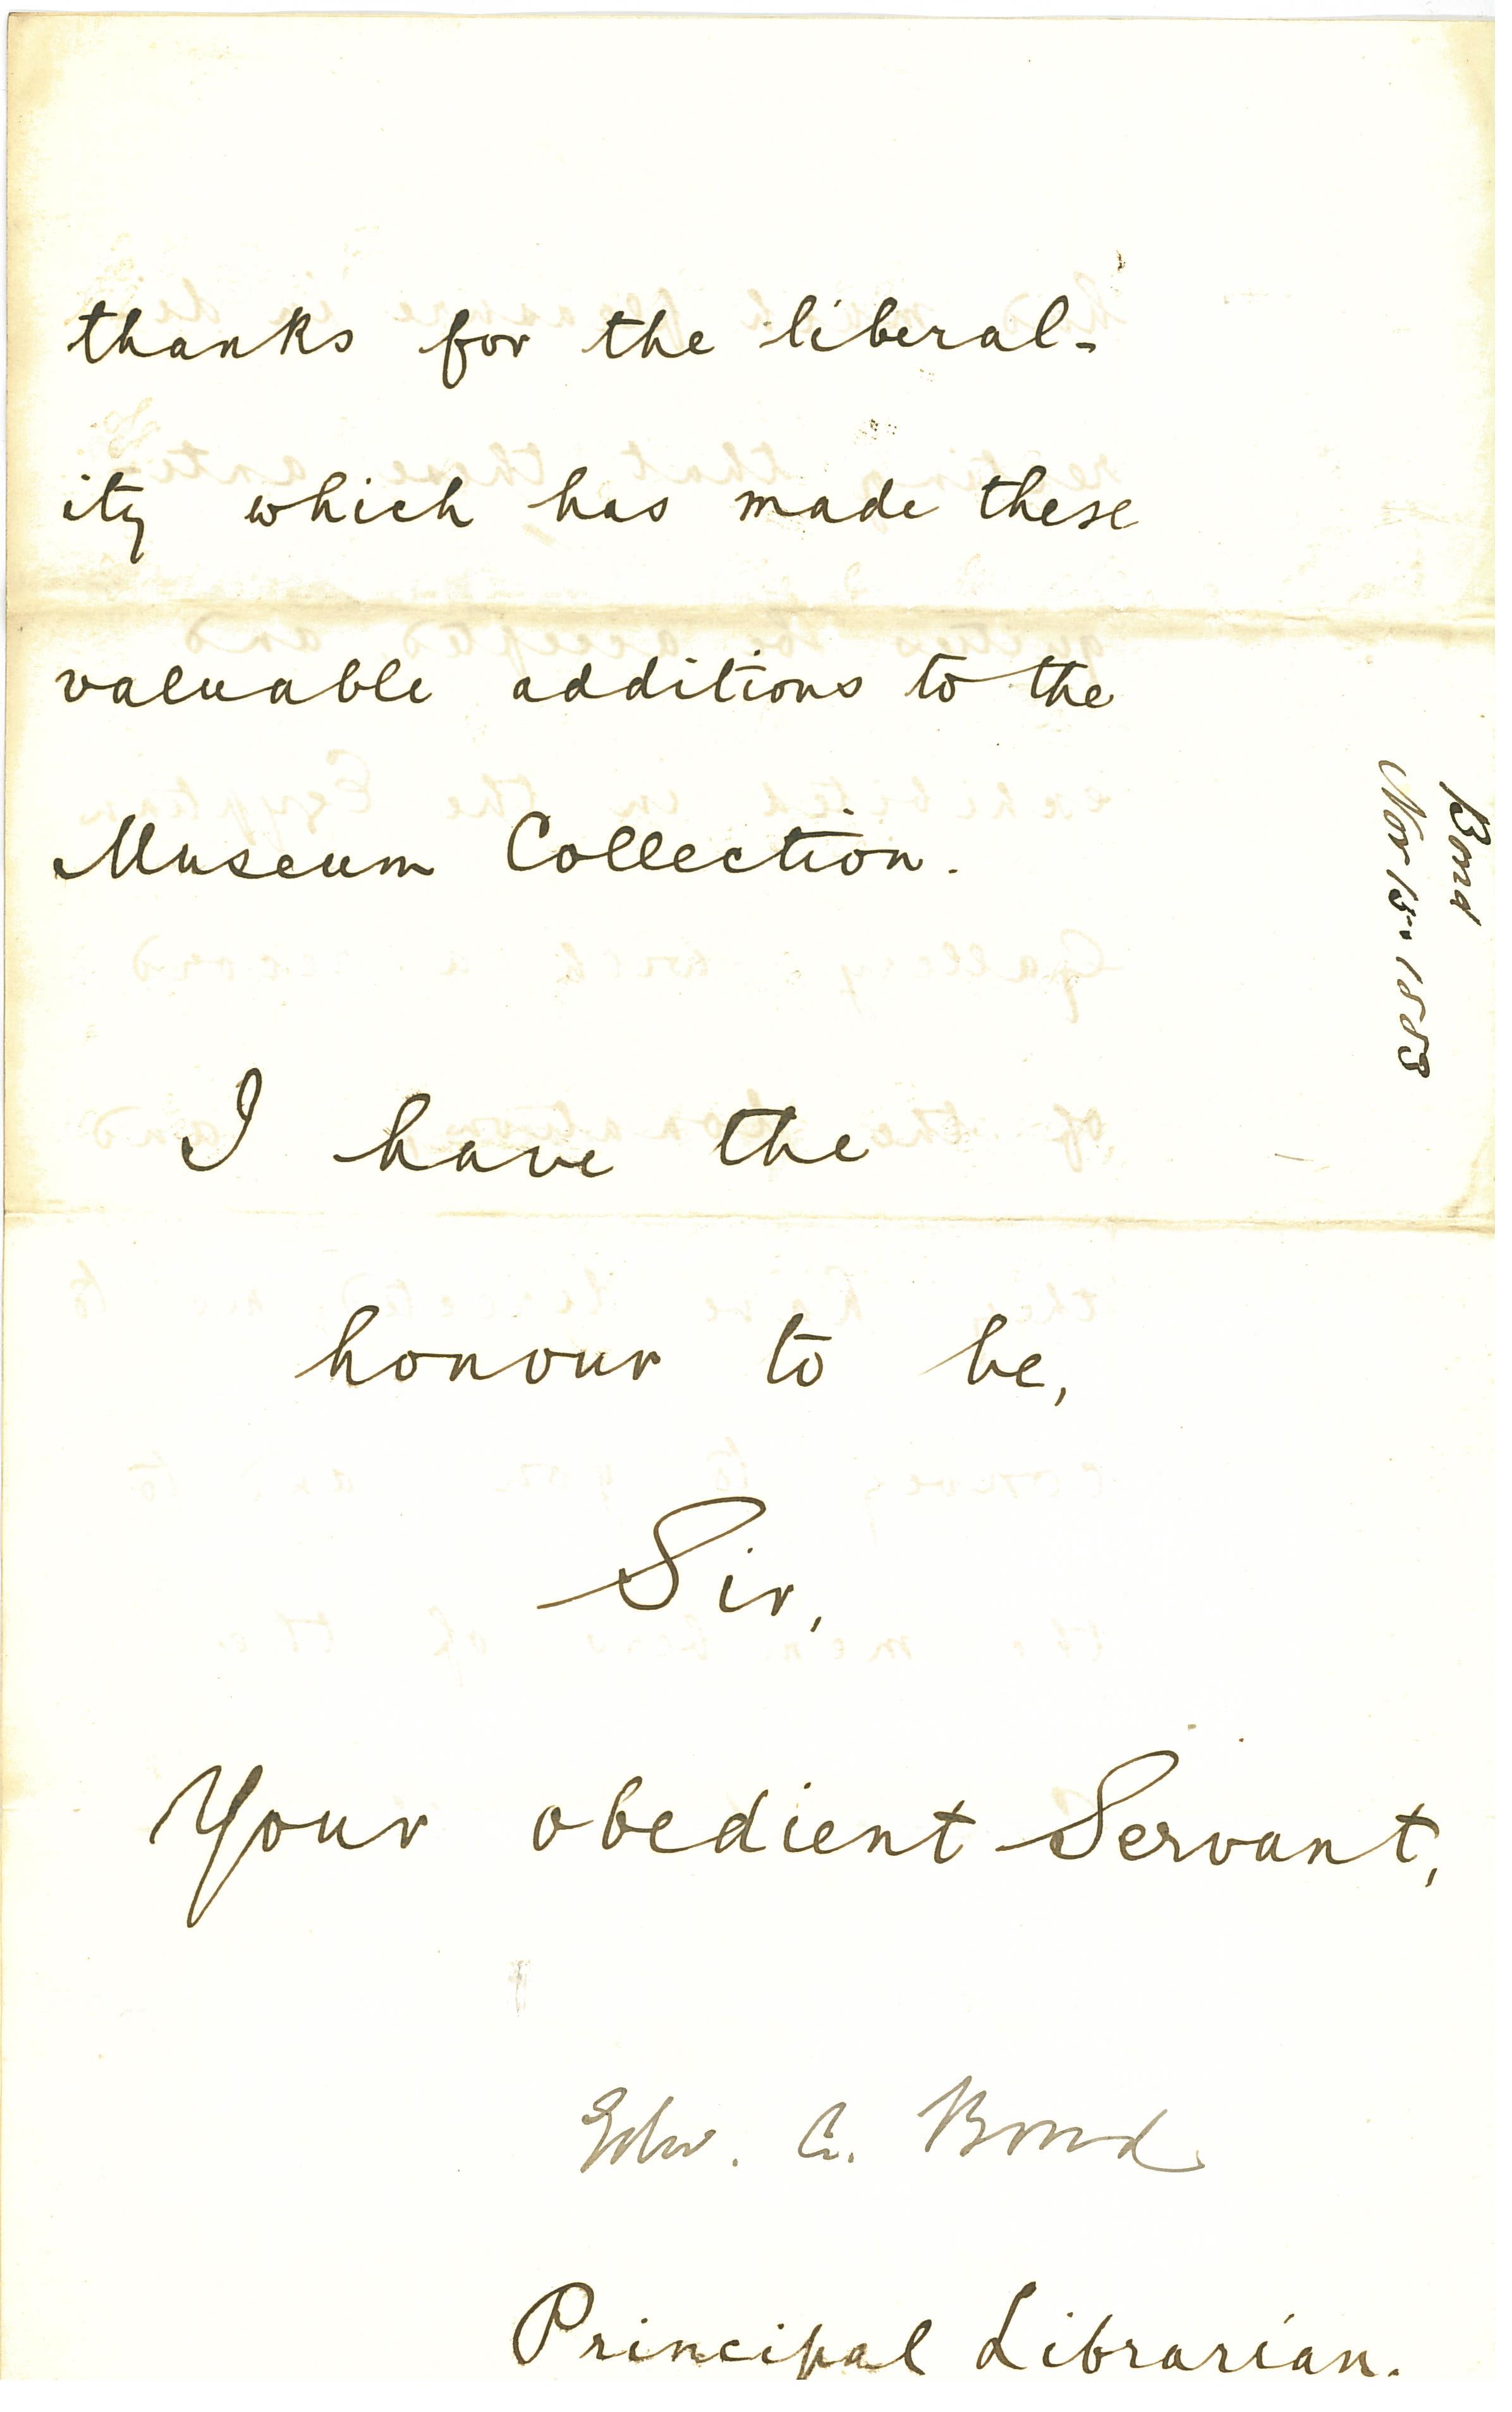 thanks for the liberal-
ity which has made these
valuable additions to the
Museum Collection.
I have the
honour to be,
Sir,
Your obedient Servant,
Edw. A. Bond
Principal Librarian.
Bond
Nov 15. 1883